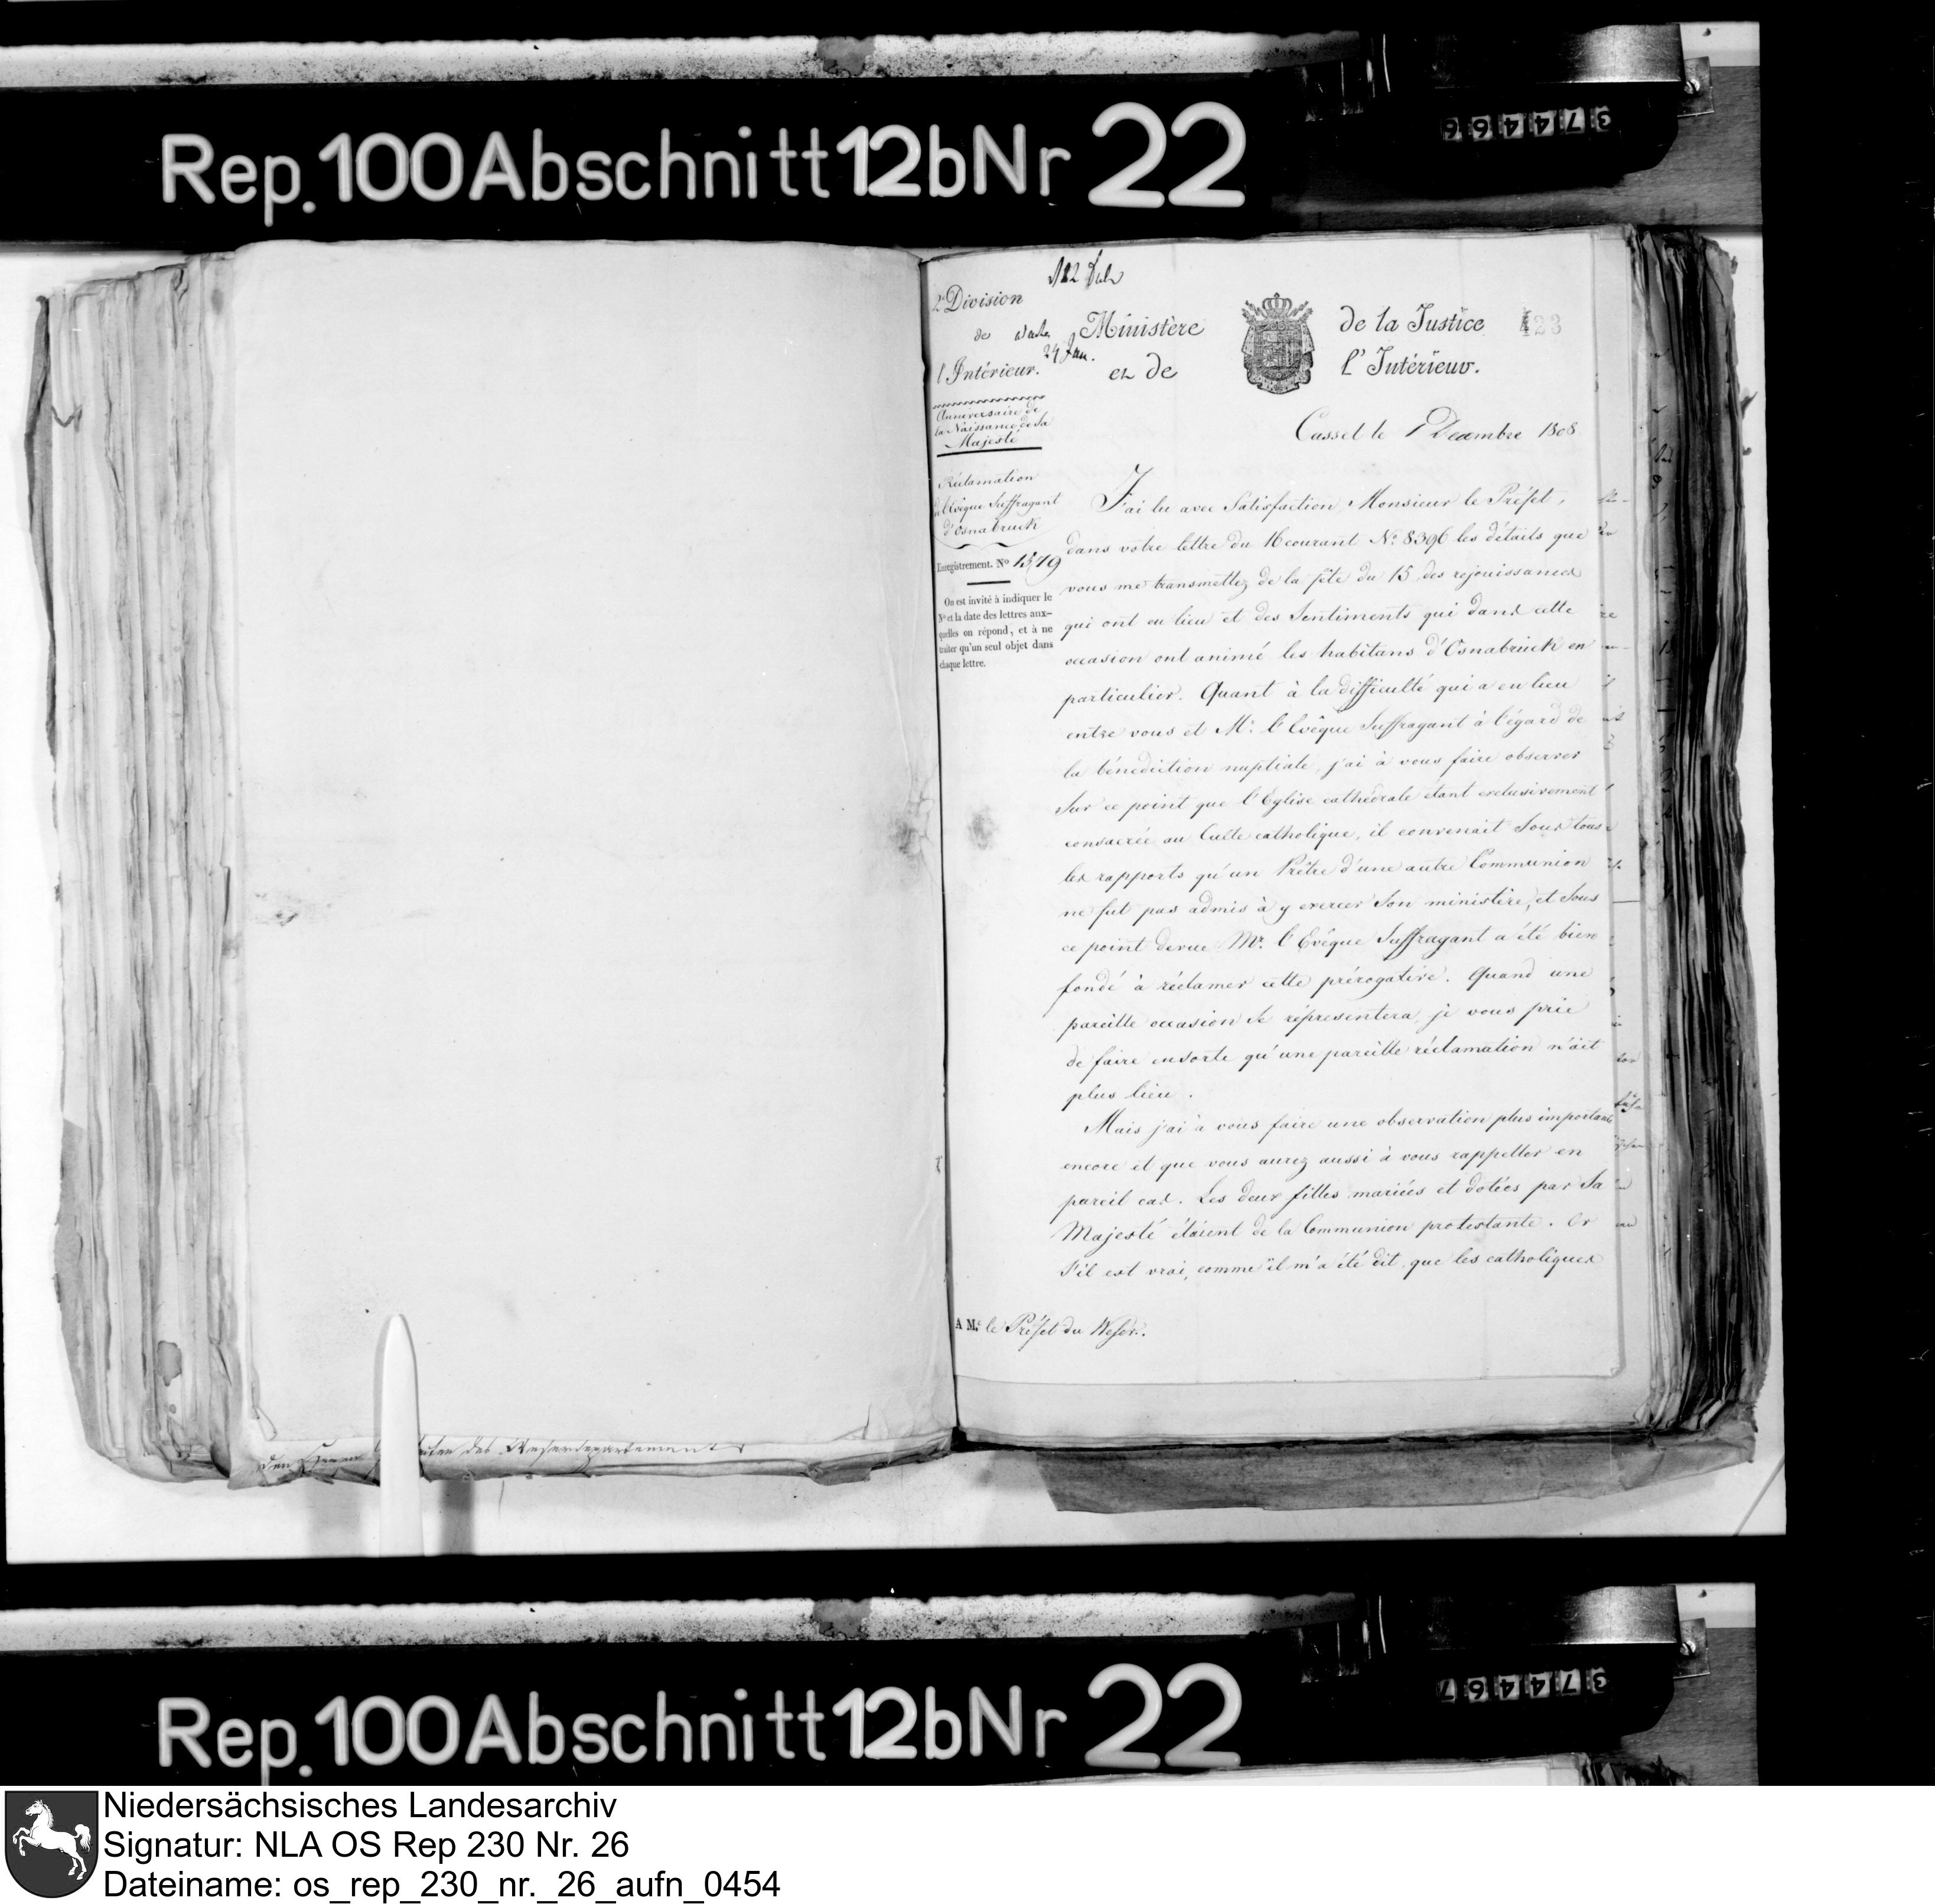 Rep. 100 Abschnitt 12b Nr 22
374466
2.e Division
de
l'Intérieur.
24 Jan.
Ministère de la Justice
et de l'Intérieur.
123
Anniversaire de
la Naissance de Sa
Majesté
Cassel le 1 Decembre 1808
Réclamation
de l'Evêque Suffragant
d'Osnabruck
Enregistrement. No 1579
On est invité à indiquer le
No et la date des lettres aux-
quelles on répond, et à ne
traiter qu'un seul objet dans
chaque lettre.
J'ai lu avec Satisfaction, Monsieur le Préfet,
dans votre lettre du 16 courant No. 8396 les détails que
vous me transmettez de la fête du 15, des rejouissances
qui ont eu lieu et des Sentiments qui dans cette
occasion ont animé les habitans d'Osnabrück en
particulier. Quant à la difficulté qui a eu lieu
entre vous et Mr. l'Evêque Suffragant à l'égard de
la bénédiction nuptiale, j'ai à vous faire observer
Sur ce point que l'Eglise cathédrale étant exclusivement
consacrée au Culte catholique, il convenait Sous tous
les rapports qu'un Prêtre d'une autre Communion
ne fut pas admis à y exercer Son ministère, et Sous
ce point de vue Mr. l'Evêque Suffragant a été bien
fondé à réclamer cette prérogative. Quand une
pareille occasion Se réprésentera, je vous prie
de faire ensorte qu'une pareille réclamation n'ait
plus lieu.
Mais j'ai à vous faire une observation plus importante
encore et que vous aurez aussi à vous rappeller en
pareil cas. Les deux filles mariées et dotées par Sa
Majesté étaient de la Communion protestante. Or
S'il est vrai, comme il m'a été dit, que les catholiques
A M.r le Préfet du Weser.
des Weserdepartements
Rep. 100 Abschnitt 12b Nr 22
374467
Niedersächsisches Landesarchiv
Signatur: NLA OS Rep 230 Nr. 26
Dateiname: os_rep_230_nr._26_aufn_0454